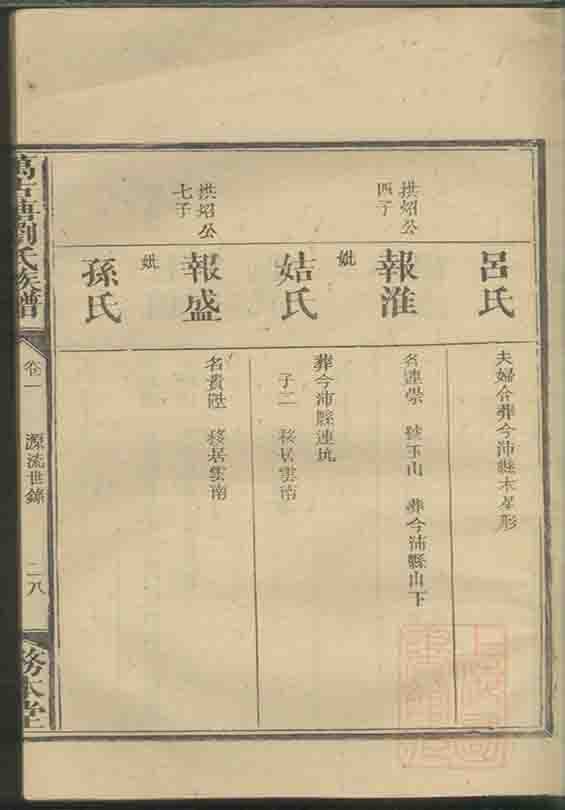 呂氏
夫婦合葬今沛縣木星形
拱炤公
四子
報淮
名連榮 號玉山 葬今沛縣山下
妣
姑氏
葬今沛縣連坑
子二 移居雲南
拱炤公
七子
報盛
名貴陞 移居雲南
妣
孫氏
劉氏族譜
卷一
源流世錄
二八
務本堂